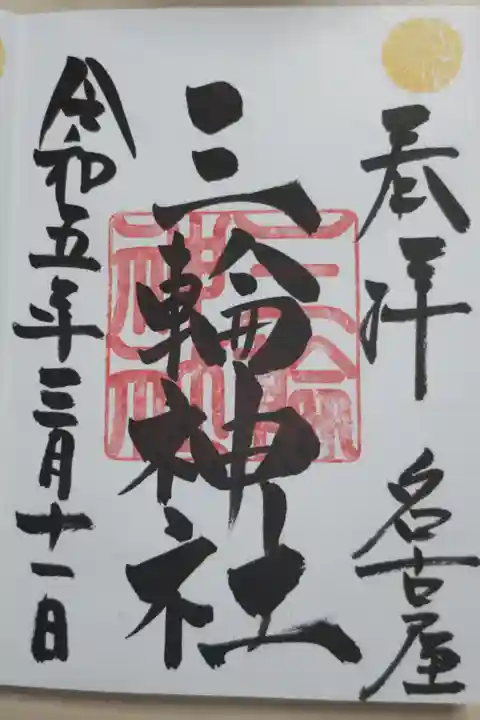 奉拝 名古屋
三輪神社
三輪神社
令和五年三月十一日